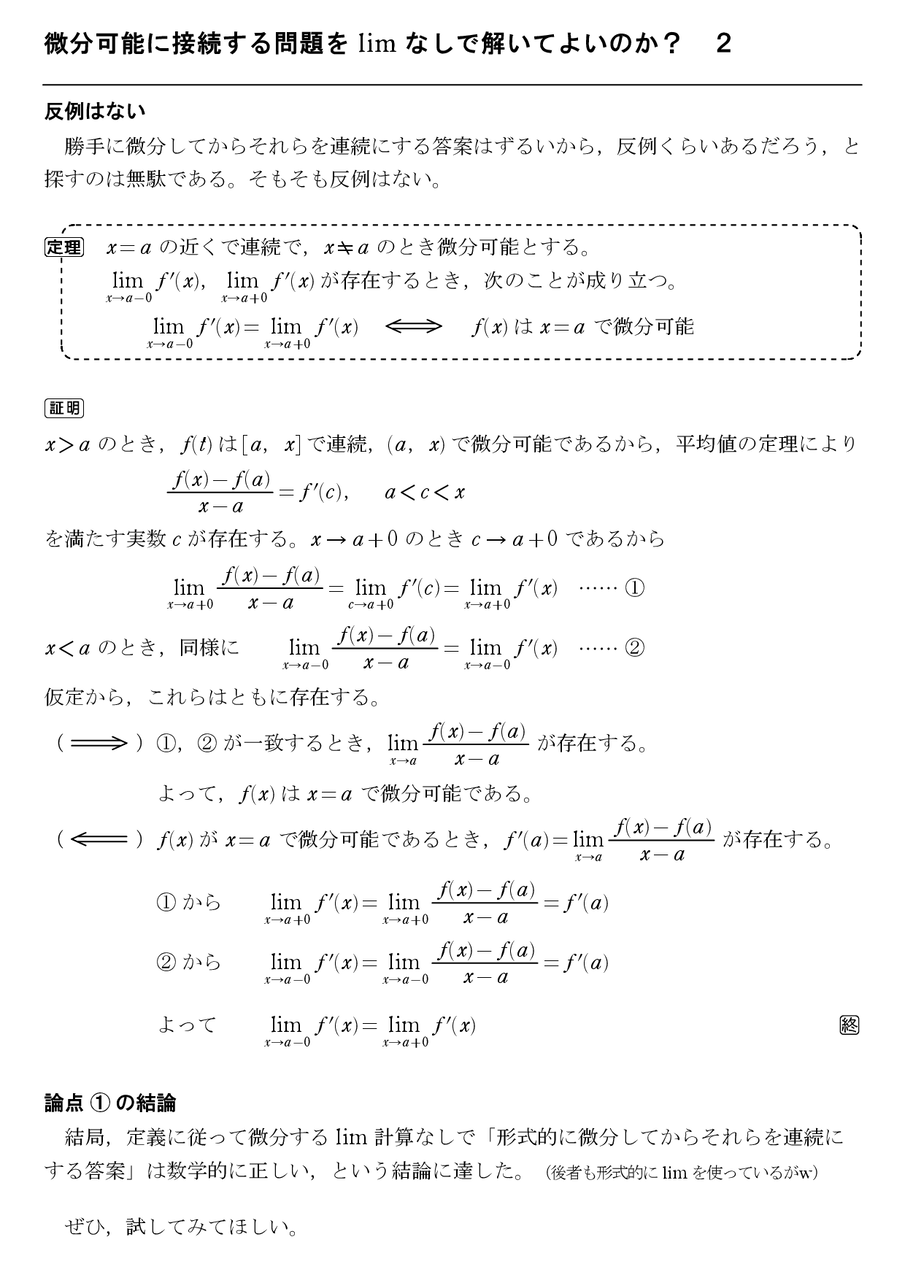 微分可能に接続する問題を lim なしで解いてよいのか？　２
反例はない
　勝手に微分してからそれらを連続にする答案はずるいから，反例くらいあるだろう，と
探すのは無駄である。そもそも反例はない。
定理　x=a の近くで連続で，x≒a のとき微分可能とする。
lim_{x→a-0} f′(x)，lim_{x→a+0} f′(x) が存在するとき，次のことが成り立つ。
lim_{x→a-0} f′(x)= lim_{x→a+0} f′(x)　⟺　f(x) は x=a で微分可能
証明
x>a のとき，f(t) は [a，x] で連続，(a，x) で微分可能であるから，平均値の定理により
(f(x)-f(a))/(x-a) = f′(c)，　a<c<x
を満たす実数 c が存在する。x→a+0 のとき c→a+0 であるから
lim_{x→a+0} (f(x)-f(a))/(x-a) = lim_{c→a+0} f′(c)= lim_{x→a+0} f′(x)　…… ①
x<a のとき，同様に　lim_{x→a-0} (f(x)-f(a))/(x-a) = lim_{x→a-0} f′(x)　…… ②
仮定から，これらはともに存在する。
（⟹）①，② が一致するとき，lim_{x→a} (f(x)-f(a))/(x-a) が存在する。
よって，f(x) は x=a で微分可能である。
（⟸）f(x) が x=a で微分可能であるとき，f′(a)=lim_{x→a} (f(x)-f(a))/(x-a) が存在する。
① から　lim_{x→a+0} f′(x)= lim_{x→a+0} (f(x)-f(a))/(x-a) = f′(a)
② から　lim_{x→a-0} f′(x)= lim_{x→a-0} (f(x)-f(a))/(x-a) = f′(a)
よって　lim_{x→a-0} f′(x)= lim_{x→a+0} f′(x)　終
論点 ① の結論
　結局，定義に従って微分する lim 計算なしで「形式的に微分してからそれらを連続に
する答案」は数学的に正しい，という結論に達した。（後者も形式的に lim を使っているがw）
　ぜひ，試してみてほしい。